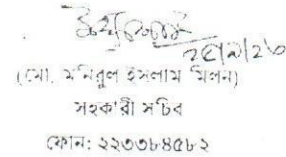 ২৫/৯/২৩
(মো. মনিরুল ইসলাম মিলন)
সহকারী সচিব
ফোন: ২২৩৩৮৪৫৮২